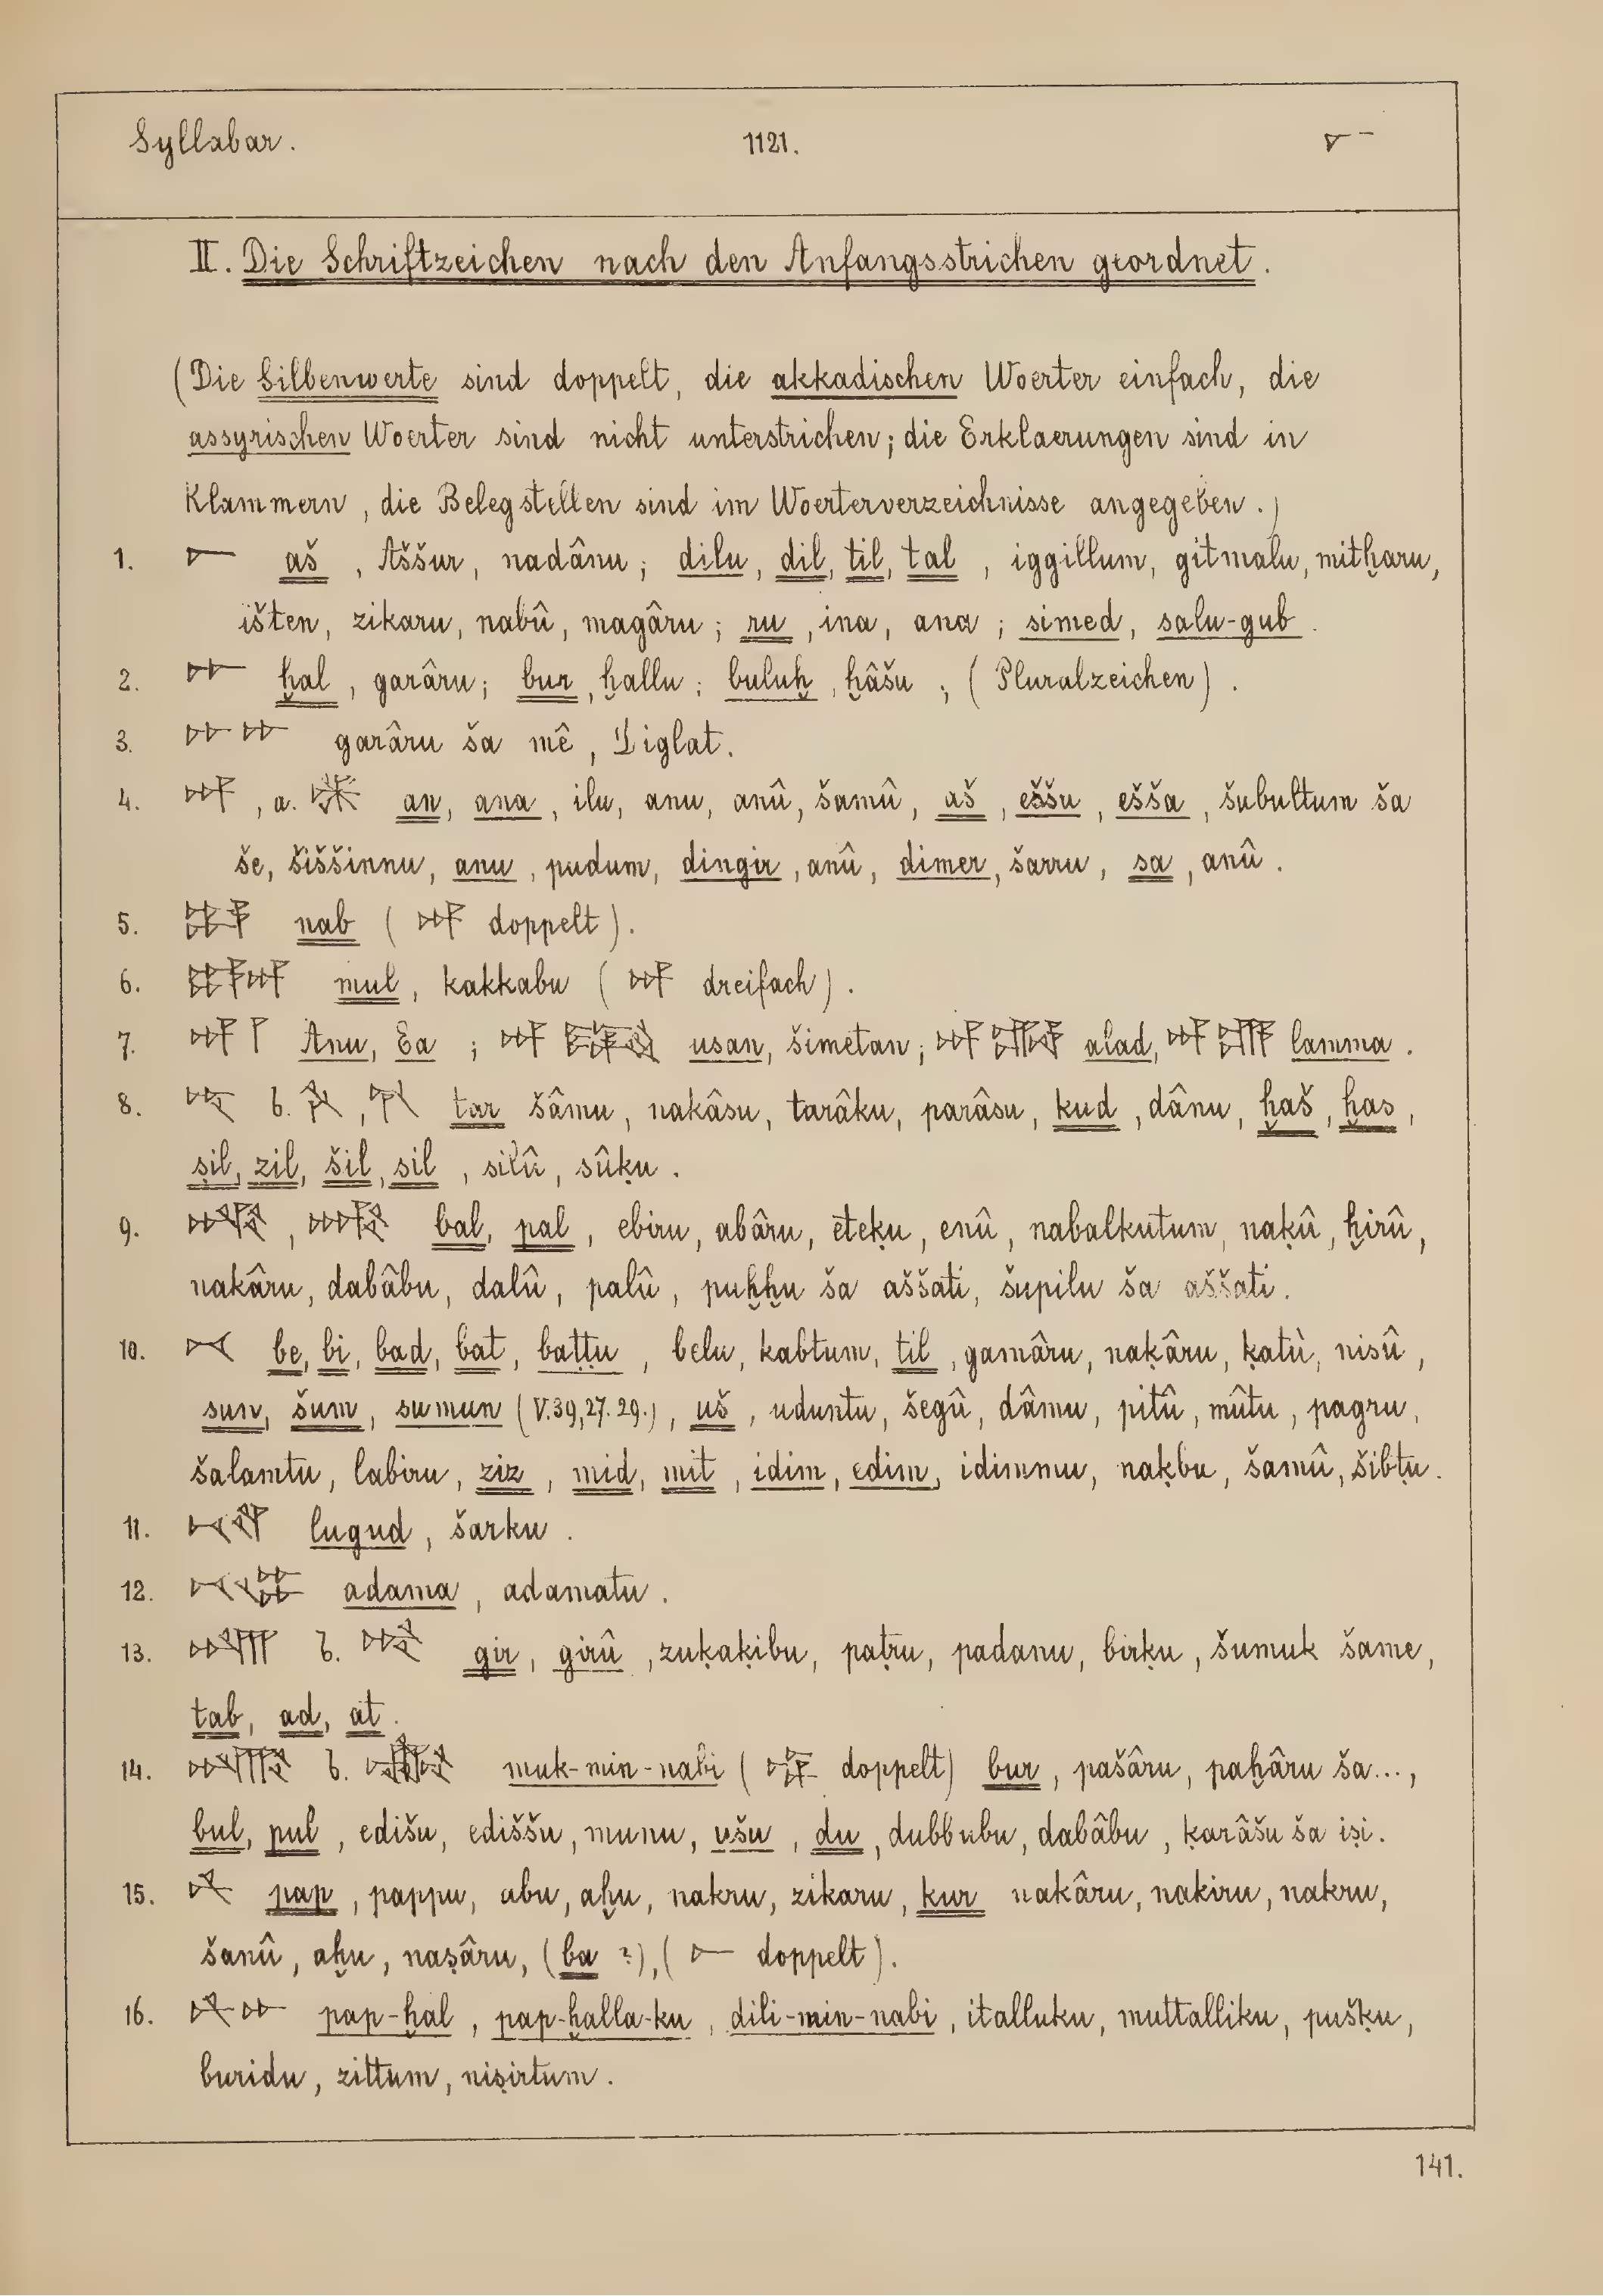 Syllabar. 1121. 𒀸
II. Die Schriftzeichen nach den Anfangsstrichen geordnet.
(Die Silbenwerte sind doppelt, die akkadischen Woerter einfach, die
assyrischen Woerter sind nicht unterstrichen; die Erklaerungen sind in
Klammern, die Belegstellen sind im Woerterverzeichnisse angegeben.)
1. 𒀸 aš, Aššur, nadânu; dilu, dil, til, tal, iggillum, gitmalu, mitḫaru,
išten, zikaru, nabû, magâru; ru, ina, ana; simed, salu-gub.
2. 𒄬 ḫal, garâru; bur, ḫallu; buluḫ, ḫâšu; (Pluralzeichen).
3. 𒄬𒄬 garâru ša mê, Diglat.
4. 𒀭, a. 𒀭 an, ana, ilu, anu, anû, šamû, aš, eššu, ešša, šubultum ša
še, šiššinnu, anu, pudum, dingir, anû, dimer, šarru, sa, anû.
5. 𒀮 nab (𒀭 doppelt).
6. 𒀯 mul, kakkabu (𒀭 dreifach).
7. 𒀭𒁹 Anu, Ea; 𒀭 usan, šimetan; 𒀭 alad, 𒀭 lamma.
8. 𒋻 b. tar šâmu, nakâsu, tarâku, parâsu, kud, dânu, ḫaš, ḫas,
ṣil, zil, šil, sil, silû, sûḳu.
9. 𒁄, 𒁄 bal, pal, ebiru, abâru, eteḳu, enû, nabalkutum, naḳû, ḫirû,
nakâru, dabâbu, dalû, palû, puḫḫu ša aššati, šupilu ša aššati.
10. 𒁁 be, bi, bad, bat, baṭṭu, belu, kabtum, til, gamâru, naḳâru, ḳatù, nisû,
sun, šum, sumun (V.39,27.29.), uš, uduntu, šegû, dâmu, pitû, mûtu, pagru,
šalamtu, labiru, ziz, mid, mit, idim, edim, idimmu, naḳbu, šamû, šibṭu.
11. lugud, šarku.
12. adama, adamatu.
13. 𒄈 b. gir, girû, zuḳaḳibu, paṭru, padanu, birḳu, šumuk šame,
tab, ad, at.
14. 𒁔 b. muk-min-nabi (doppelt) bur, pašâru, paḫâru ša...,
bul, pul, edišu, ediššu, munu, ušu, du, dubbubu, dabâbu, ḳarâšu ša iṣi.
15. 𒉽 pap, pappu, abu, aḫu, nakru, zikaru, kur nakâru, nakiru, nakru,
šanû, aḫu, naṣâru, (ba ?), (𒀸 doppelt).
16. 𒉽𒄬 pap-ḫal, pap-ḫalla-ku, dili-min-nabi, italluku, muttalliku, pušḳu,
buridu, zittum, niṣirtum.
141.